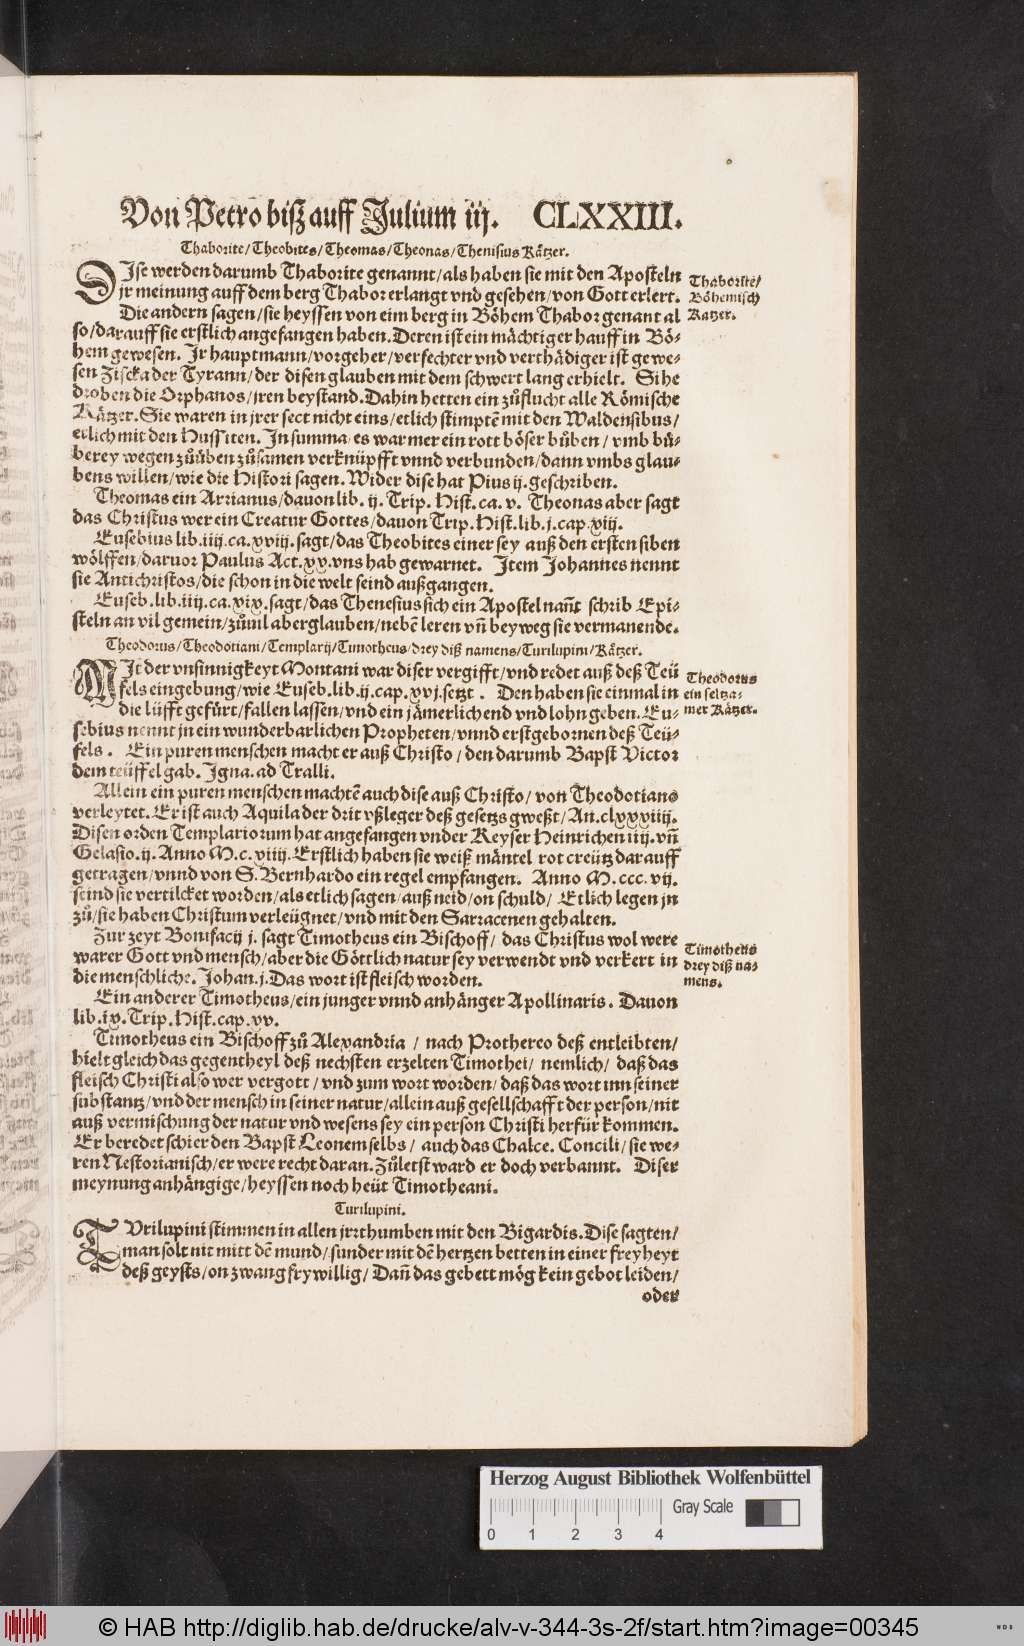 Von Petro biß auff Julium iij. CLXXIII.
Thaborite/Theobites/Theomas/Theonas/Thenisius Kätzer.
DIse werden darumb Thaborite genannt/als haben sie mit den Aposteln
jr meinung auff dem berg Thabor erlangt vnd gesehen/von Gott erlert.
Thaborite/
Böhemisch
Katzer.
Die andern sagen/sie heyssen von eim berg in Böhem Thabor genant al
so/darauff sie erstlich angefangen haben. Deren ist ein mächtiger hauff in Bö-
hem gewesen. Jr hauptmann/vorgeher/verfechter vnd verthädiger ist gewe-
sen Zischka der Tyrann/der disen glauben mit dem schwert lang erhielt. Sihe
droben die Orphanos/jren beystand. Dahin hetten ein zůflucht alle Römische
Kätzer. Sie waren in jrer sect nicht eins/etlich stimptē mit den Waldensibus/
etlich mit den Hussiten. In summa/es war mer ein rott böser bůben/vmb bů-
berey wegen zůüben zůsamen verknüpfft vnnd verbunden/dann vmbs glau-
bens willen/wie die Histori sagen. Wider dise hat Pius ij. geschriben.
Theomas ein Arrianus/dauon lib. ij. Trip. Hist. ca. v. Theonas aber sagt
das Christus wer ein Creatur Gottes/dauon Trip. Hist. lib. j. cap. xiij.
Eusebius lib. iiij. ca. xviij. sagt/das Theobites einer sey auß den ersten siben
wölffen/daruor Paulus Act. xx. vns hab gewarnet. Item Johannes nennt
sie Antichristos/die schon in die welt seind außgangen.
Euseb. lib. iiij. ca. xix. sagt/das Thenesius sich ein Apostel nañt schrib Epi-
steln an vil gemein/zůuil aberglauben/nebē leren vñ beyweg sie vermanende.
Theodorus/Theodotiani/Templarij/Timotheus/drey diß namens/Turilupini/Kätzer.
MIt der vnsinnigkeyt Montani war diser vergifft/vnd redet auß deß Teü
fels eingebung/wie Euseb. lib. ij. cap. xvj. setzt. Den haben sie einmal in
die lüfft gefürt/fallen lassen/vnd ein jämerlich end vnd lohn geben. Eu-
Theodorus
ein seltza-
mer Kätzer.
sebius nennt jn ein wunderbarlichen Propheten/vnnd erstgebornen deß Teü-
fels. Ein puren menschen macht er auß Christo/den darumb Bapst Victor
dem teüffel gab. Igna. ad Tralli.
Allein ein puren menschen machtē auch dise auß Christo/von Theodotiano
verleytet. Er ist auch Aquila der drit vßleger deß gesetzs gweßt/An. clxxxiiij.
Disen orden Templariorum hat angefangen vnder Keyser Heinrichen iiij. vñ
Gelasio. ij. Anno M. c. xiiij. Erstlich haben sie weiß mäntel rot creütz darauff
getragen/vnnd von S. Bernhardo ein regel empfangen. Anno M. ccc. vij.
seind sie vertilcket worden/als etlich sagen/auß neid/on schuld/ Etlich legen jn
zů/sie haben Christum verleügnet/vnd mit den Sarracenen gehalten.
Zur zeyt Bonifacij j. sagt Timotheus ein Bischoff/ das Christus wol were
warer Gott vnd mensch/aber die Göttlich natur sey verwendt vnd verkert in
die menschliche. Johan. j. Das wort ist fleisch worden.
Timotheus
drey diß na-
mens.
Ein anderer Timotheus/ein junger vnnd anhänger Apollinaris. Dauon
lib. ix. Trip. Hist. cap. xv.
Timotheus ein Bischoff zů Alexandria / nach Prothereo deß entleibten/
hielt gleich das gegentheyl deß nechsten erzelten Timothei/ nemlich/ daß das
fleisch Christi also wer vergott/vnd zum wort worden/daß das wort inn seiner
substantz/vnd der mensch in seiner natur/allein auß gesellschafft der person/nit
auß vermischung der natur vnd wesens sey ein person Christi herfür kommen.
Er beredet schier den Bapst Leonem selbs/ auch das Chalce. Concili/sie we-
ren Nestorianisch/er were recht daran. Zůletst ward er doch verbannt. Diser
meynung anhängige/heyssen noch heüt Timotheani.
Turilupini.
TVrilupini stimmen in allen jrrthumben mit den Bigardis. Dise sagten/
man solt nit mitt dē mund/sunder mit dē hertzen betten in einer freyheyt
deß geysts/on zwang frywillig/ Dañ das gebett mög kein gebot leiden/
oder
Herzog August Bibliothek Wolfenbüttel
Gray Scale
0 1 2 3 4
© HAB http://diglib.hab.de/drucke/alv-v-344-3s-2f/start.htm?image=00345